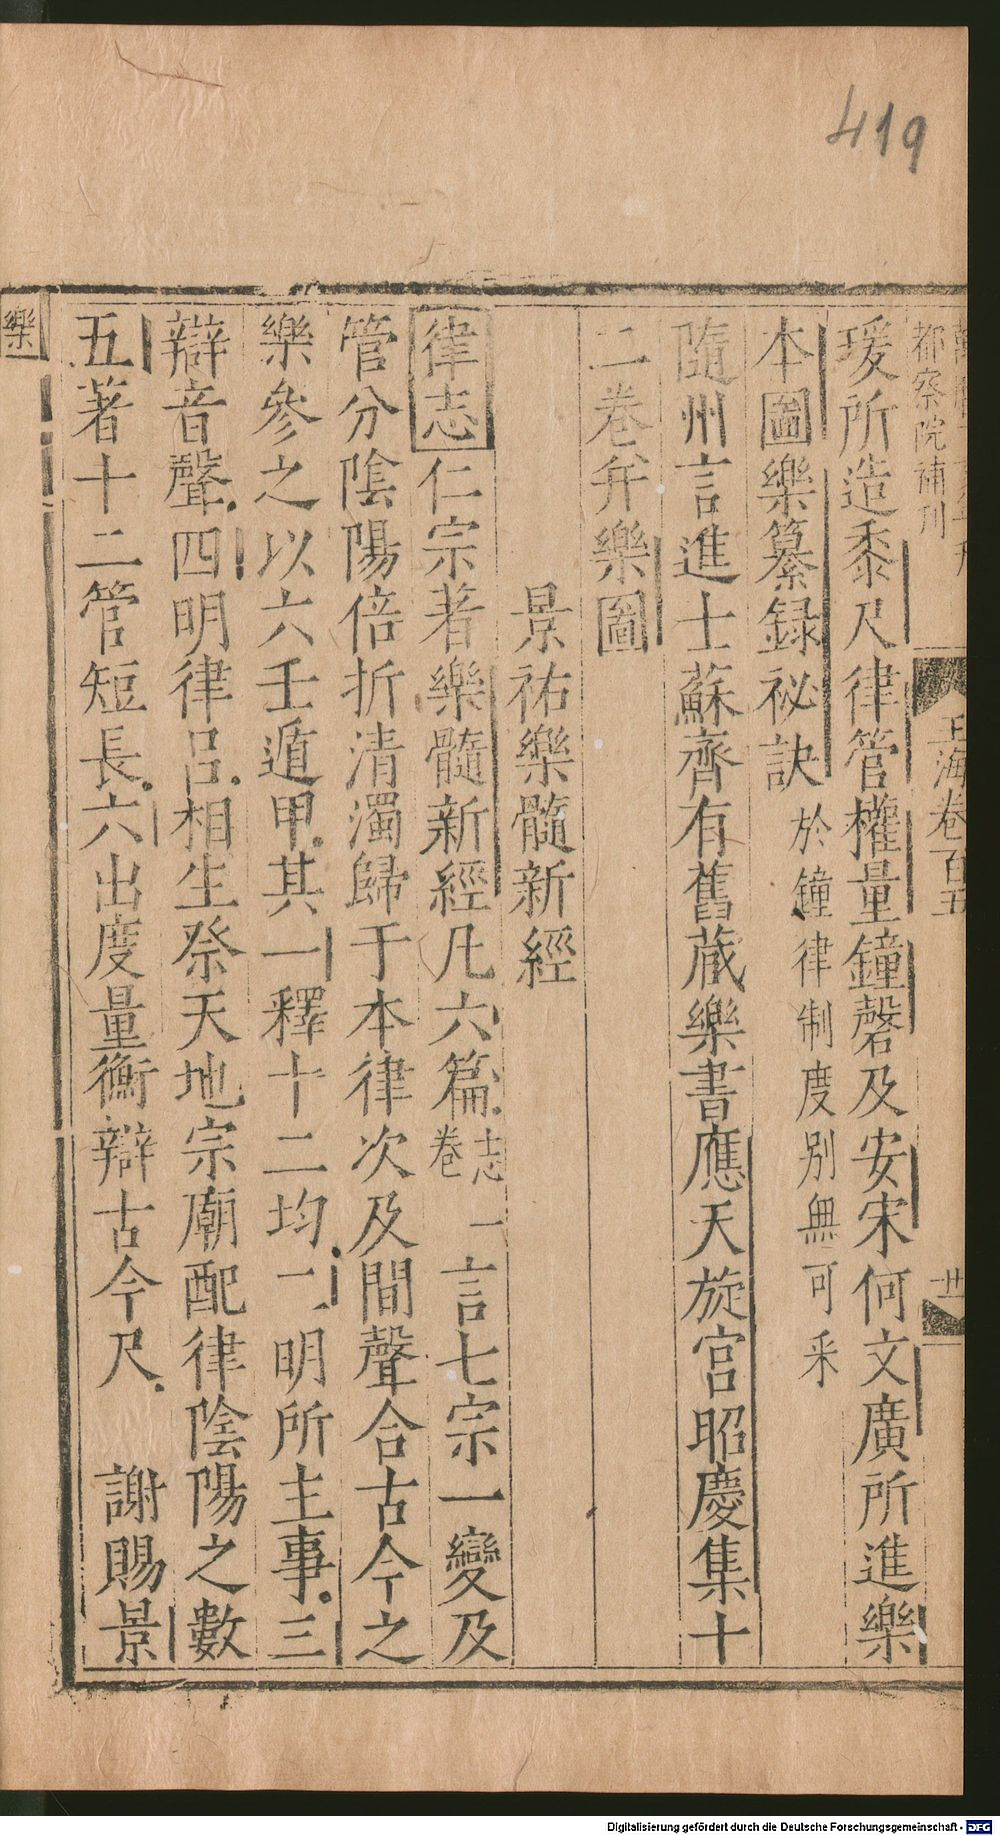 419
都察院補刋
玉海卷百五
廿
瑗所造黍尺律管權量鐘磬及安宋何文廣所進樂
本圖樂纂録祕訣於鐘律制度別無可采
隨州言進士蘇齊有舊蔵樂書應天旋宮昭慶集十
二卷并樂圖
景祐樂髓新經
律志仁宗著樂髓新經凡六篇志卷一言七宗一變及
管分陰陽倍折清濁歸于本律次及間聲合古今之
樂參之以六壬遁甲其一釋十二均二明所主事三
辯音聲四明律呂相生祭天地宗廟配律陰陽之數
五著十二管短長六出度量衡辯古今尺 謝賜景
樂
Digitalisierung gefördert durch die Deutsche Forschungsgemeinschaft - DFG